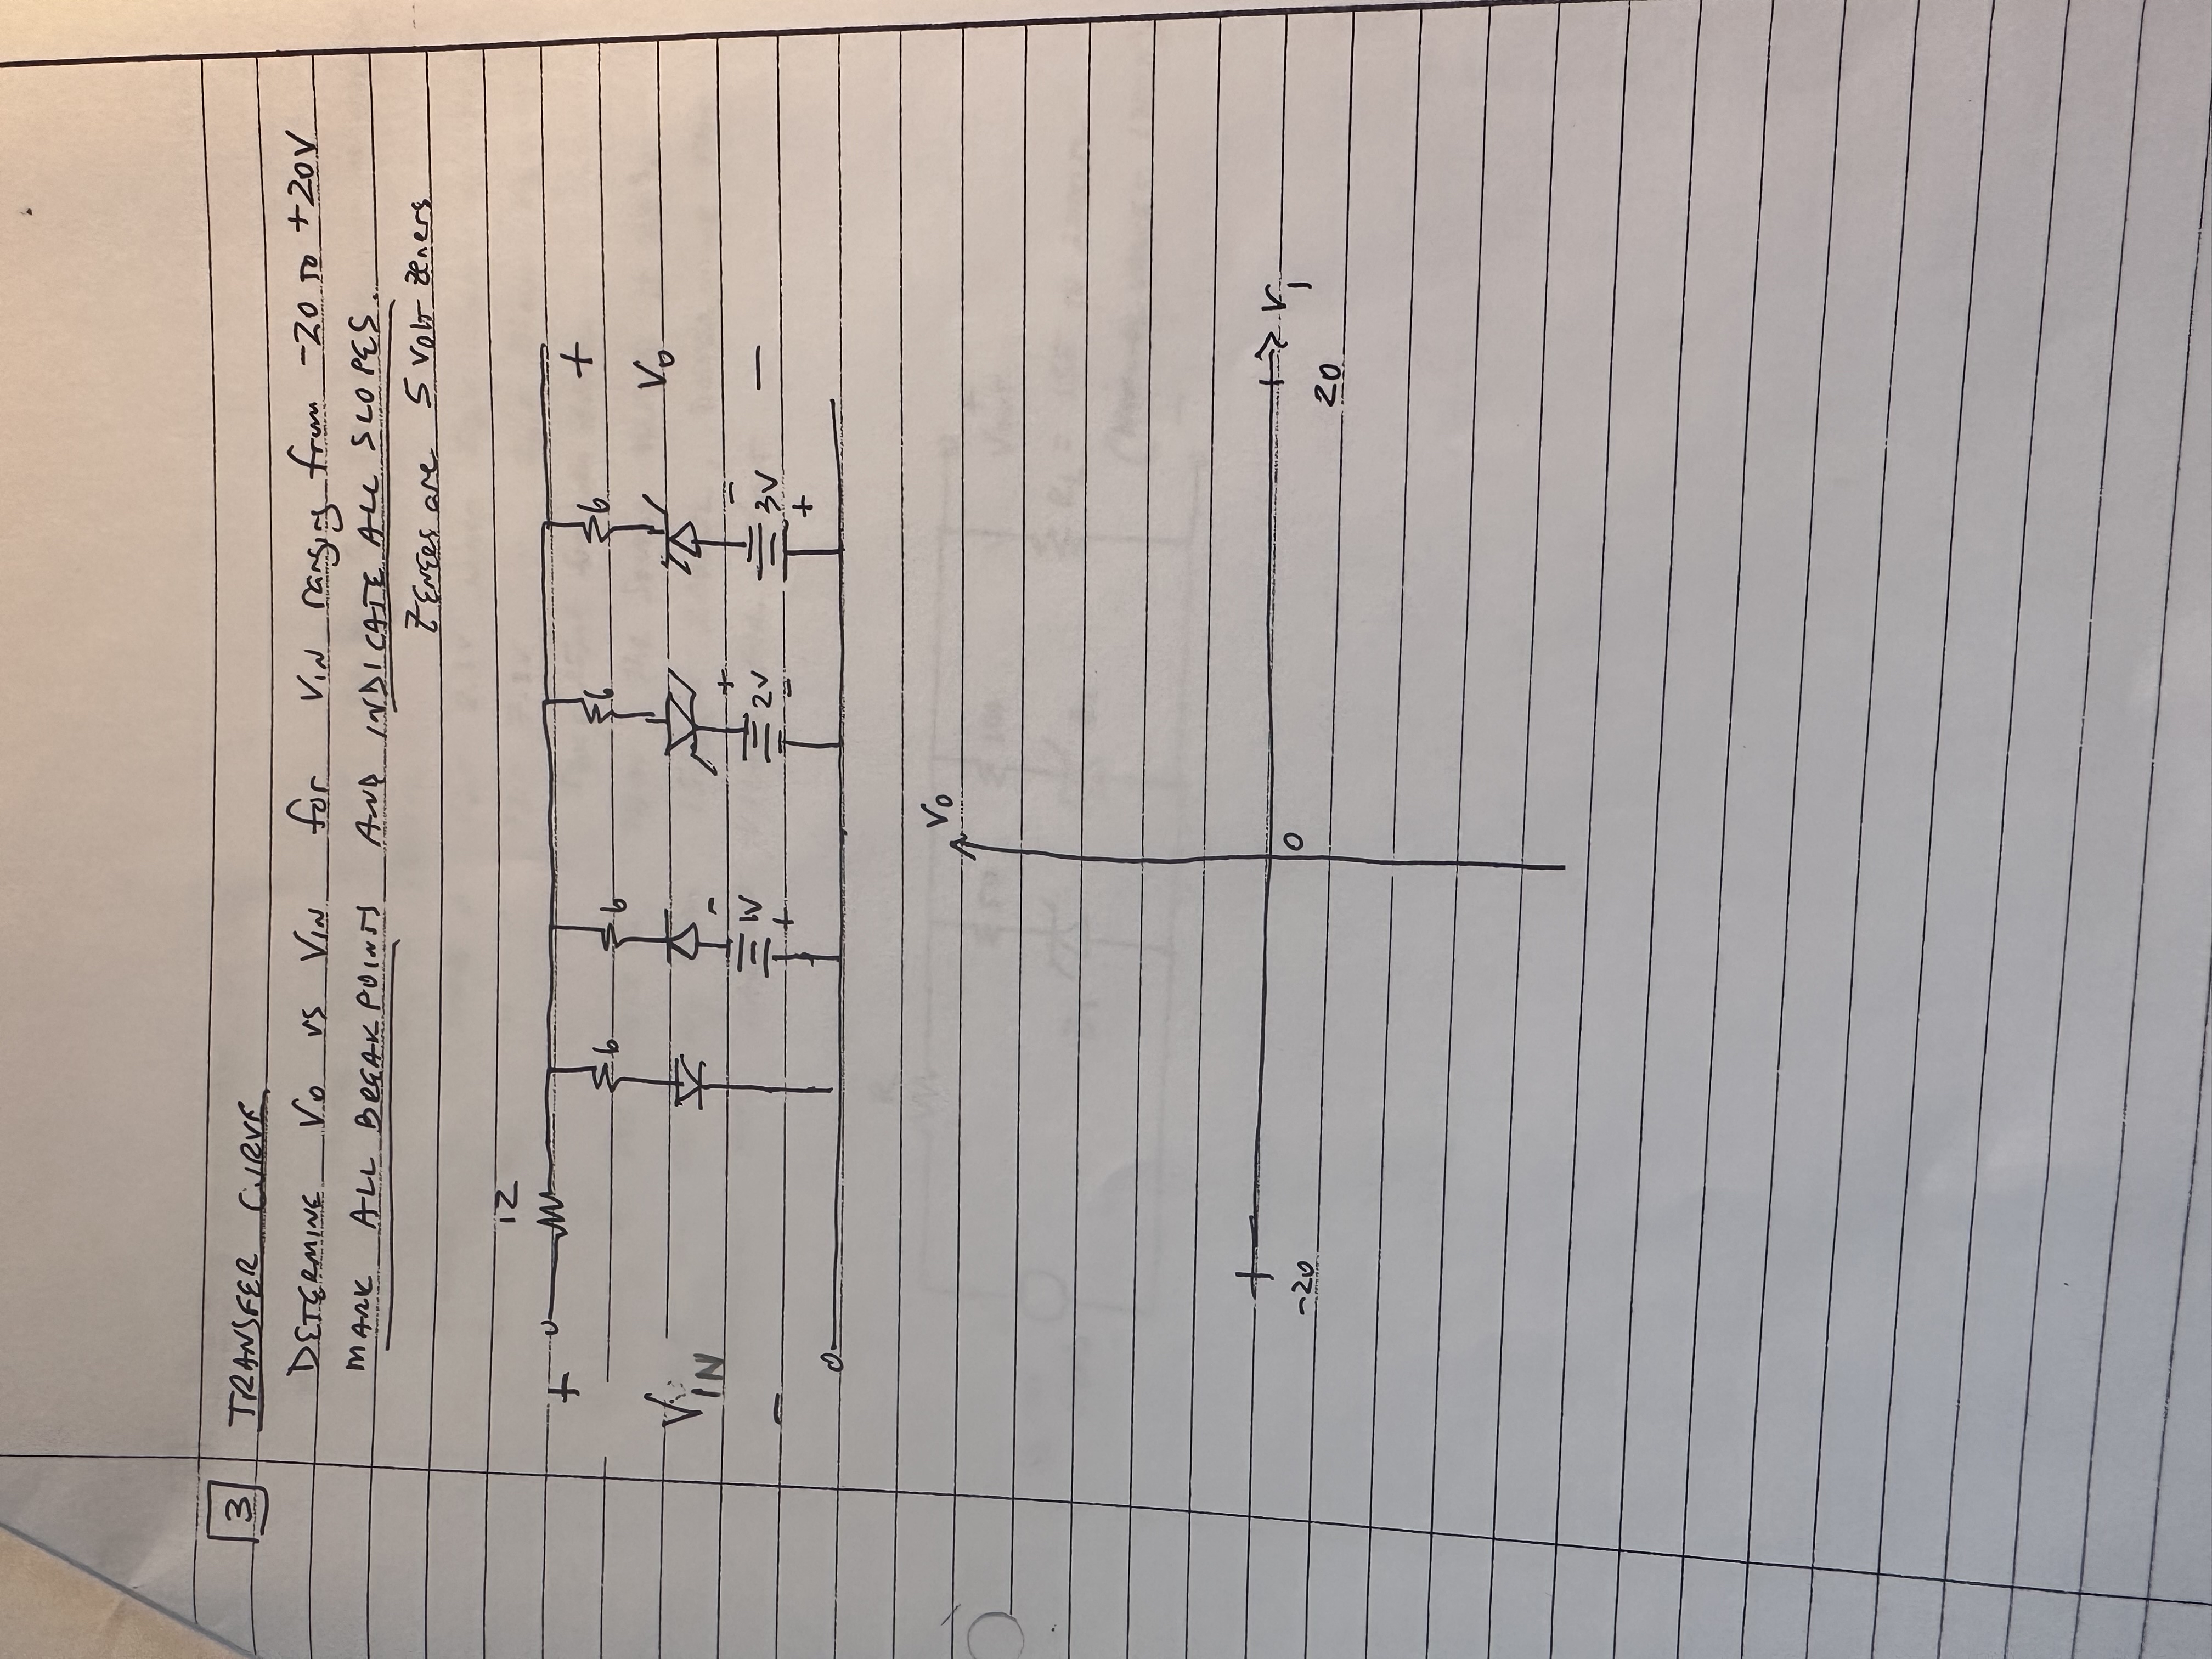 3 TRANSFER CURVE
DETERMINE Vo vs VIN for VIN ranging from -20 TO +20V
MARK ALL BREAKPOINTS AND INDICATE ALL SLOPES.
ZENERS are 5 Volt zeners
12
+ +
6 6 6 6
VIN Vo
- + -
1V 2V 3V
+ - +
- -
Vo
V1
-20 0 20